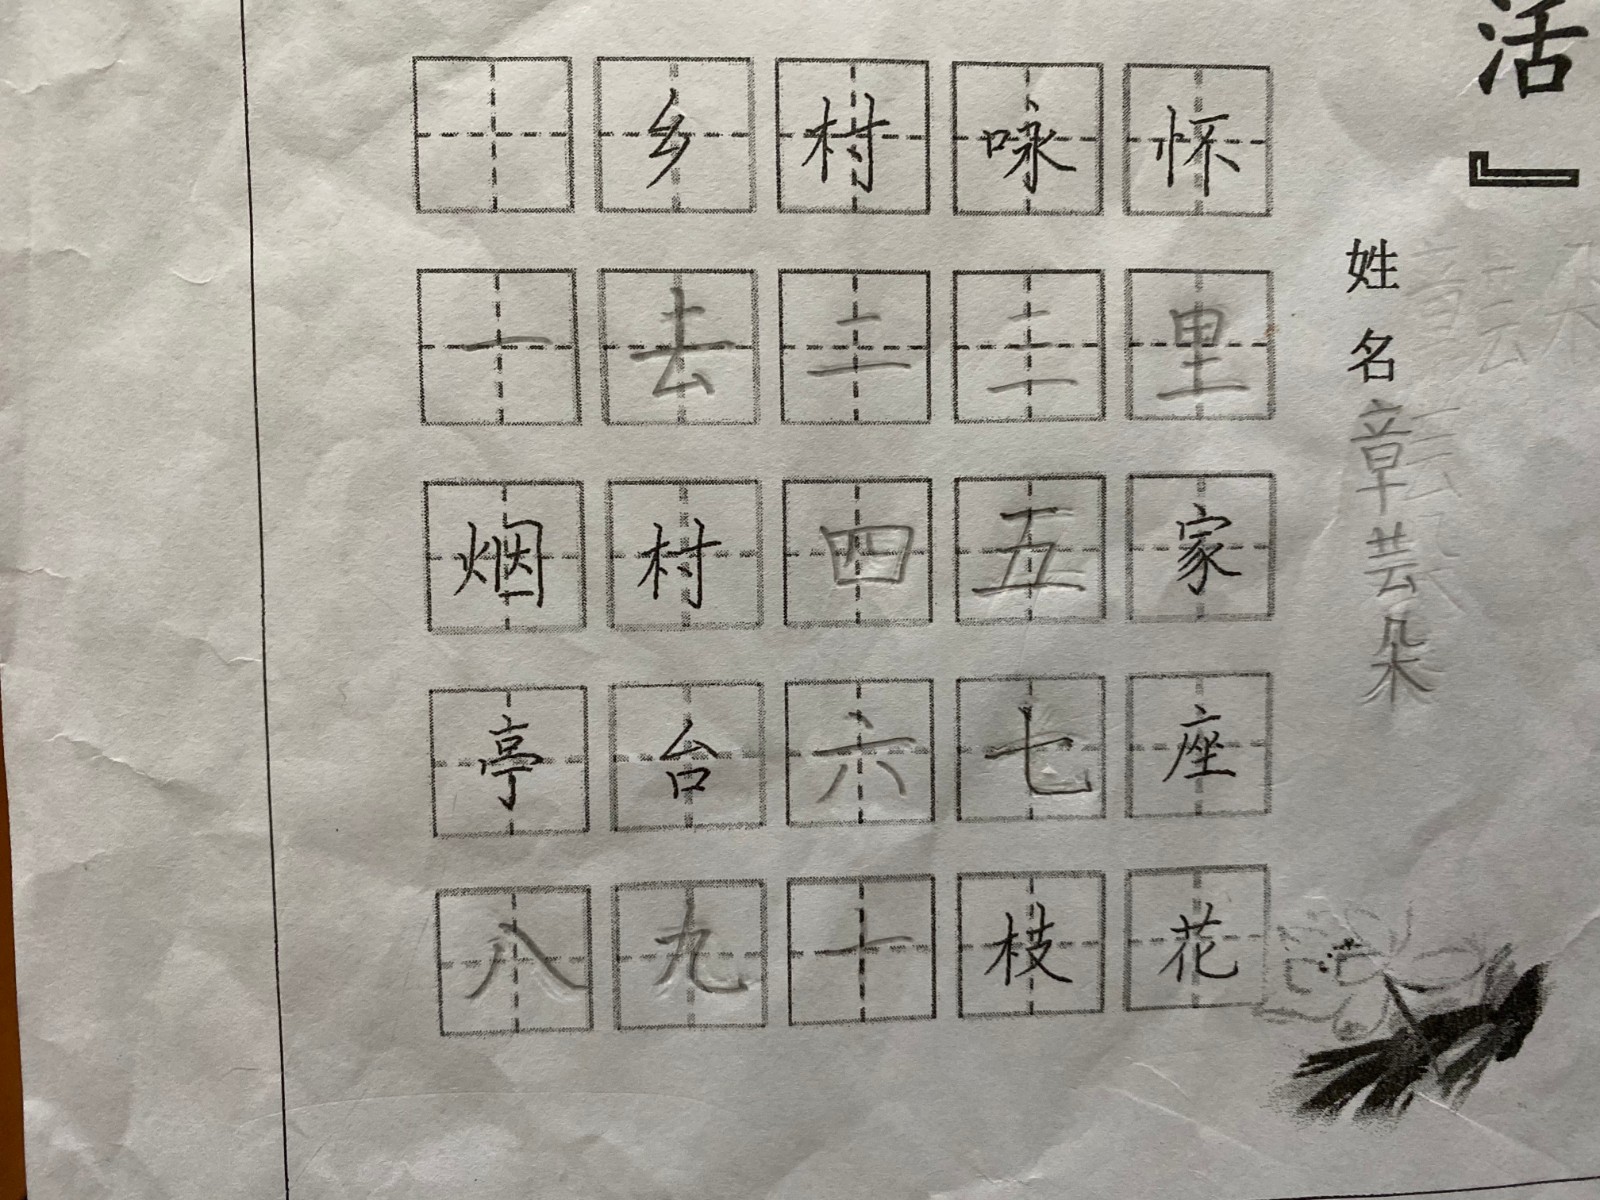 活』
姓名章芸朵
乡村咏怀
一去二三里
烟村四五家
亭台六七座
八九十枝花